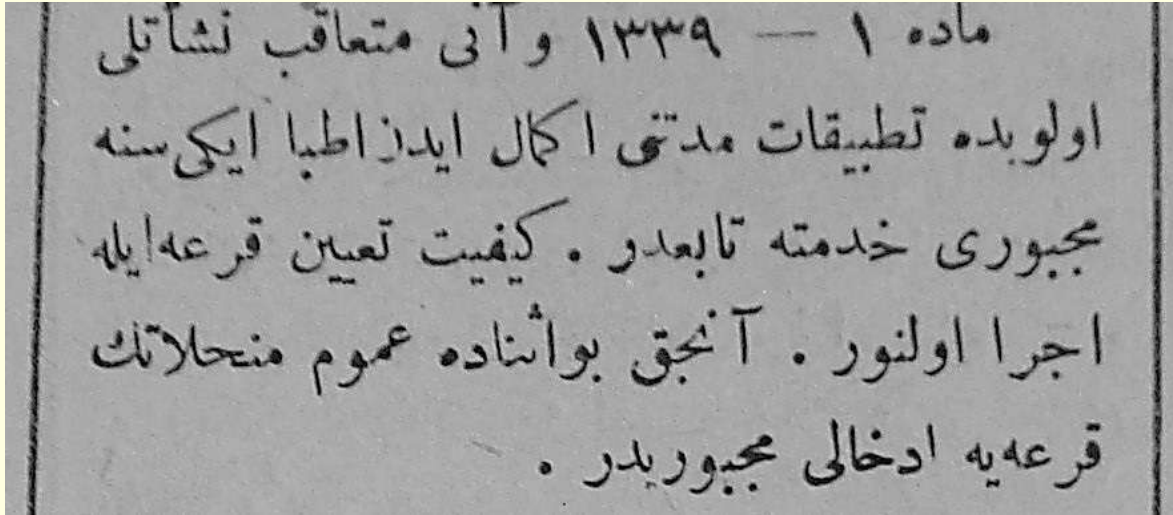 ماده ١ — ١٣٣٩ و آنی متعاقب نشأتلی
اولوبده تطبیقات مدتنی اکمال ایدن اطبا ایکی سنه
مجبوری خدمته تابعدر . کیفیت تعیین قرعه ایله
اجرا اولنور . آنجق بو اثناده عموم منحلاتك
قرعه‌یه ادخالی مجبوریدر .